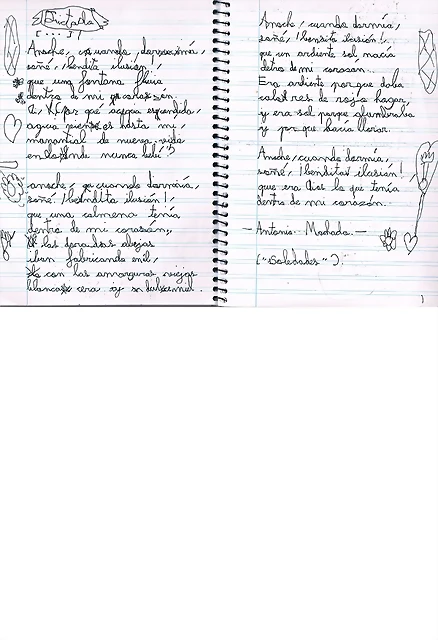 El Dictado
[...]
Anoche, cuando dormía,
soñé, ¡bendita ilusión!
que una fontana fluía
dentro de mi corazón.
¿por qué acequia escondida,
agua vienes hasta mí,
manantial de nueva vida
en donde nunca bebí?
anoche, cuando dormía,
soñé ¡bendita ilusión!,
que una colmena tenía
dentro de mi corazón;
las doradas abejas
iban fabricando en él,
con las amarguras viejas
blanca cera y dulce miel.
Anoche, cuando dormía,
soñé, ¡bendita ilusión!
que un ardiente sol nacía
detro de mi corazón.
Era ardiente porque daba
calores de rojo hogar,
y era sol porque alumbraba
y por que hacía llorar.
Anoche, cuando dormía,
soñé, ¡bendita ilusión!
que era Dios lo que tenía
dentro de mi corazón.
— Antonio Machado. —
("Soledades").